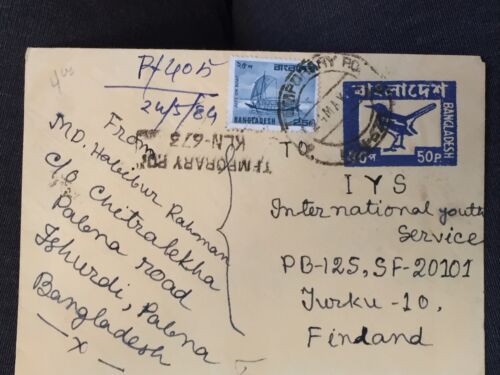 4us
P/405
24/5/84
From
MD. Habibur Rahman
C/O Chitralekha
Pabna road
Ishurdi, Pabna
Bangladesh
x
২৫প বাংলাদেশ
BANGLADESH 25P
TEMPORARY P.O.
TEMPORARY PO.
KLN-673
বাংলাদেশ
BANGLADESH
৫০প 50P.
TO,
IYS
International youth
Service
PB-125, SF-20101
Turku -10,
Finland